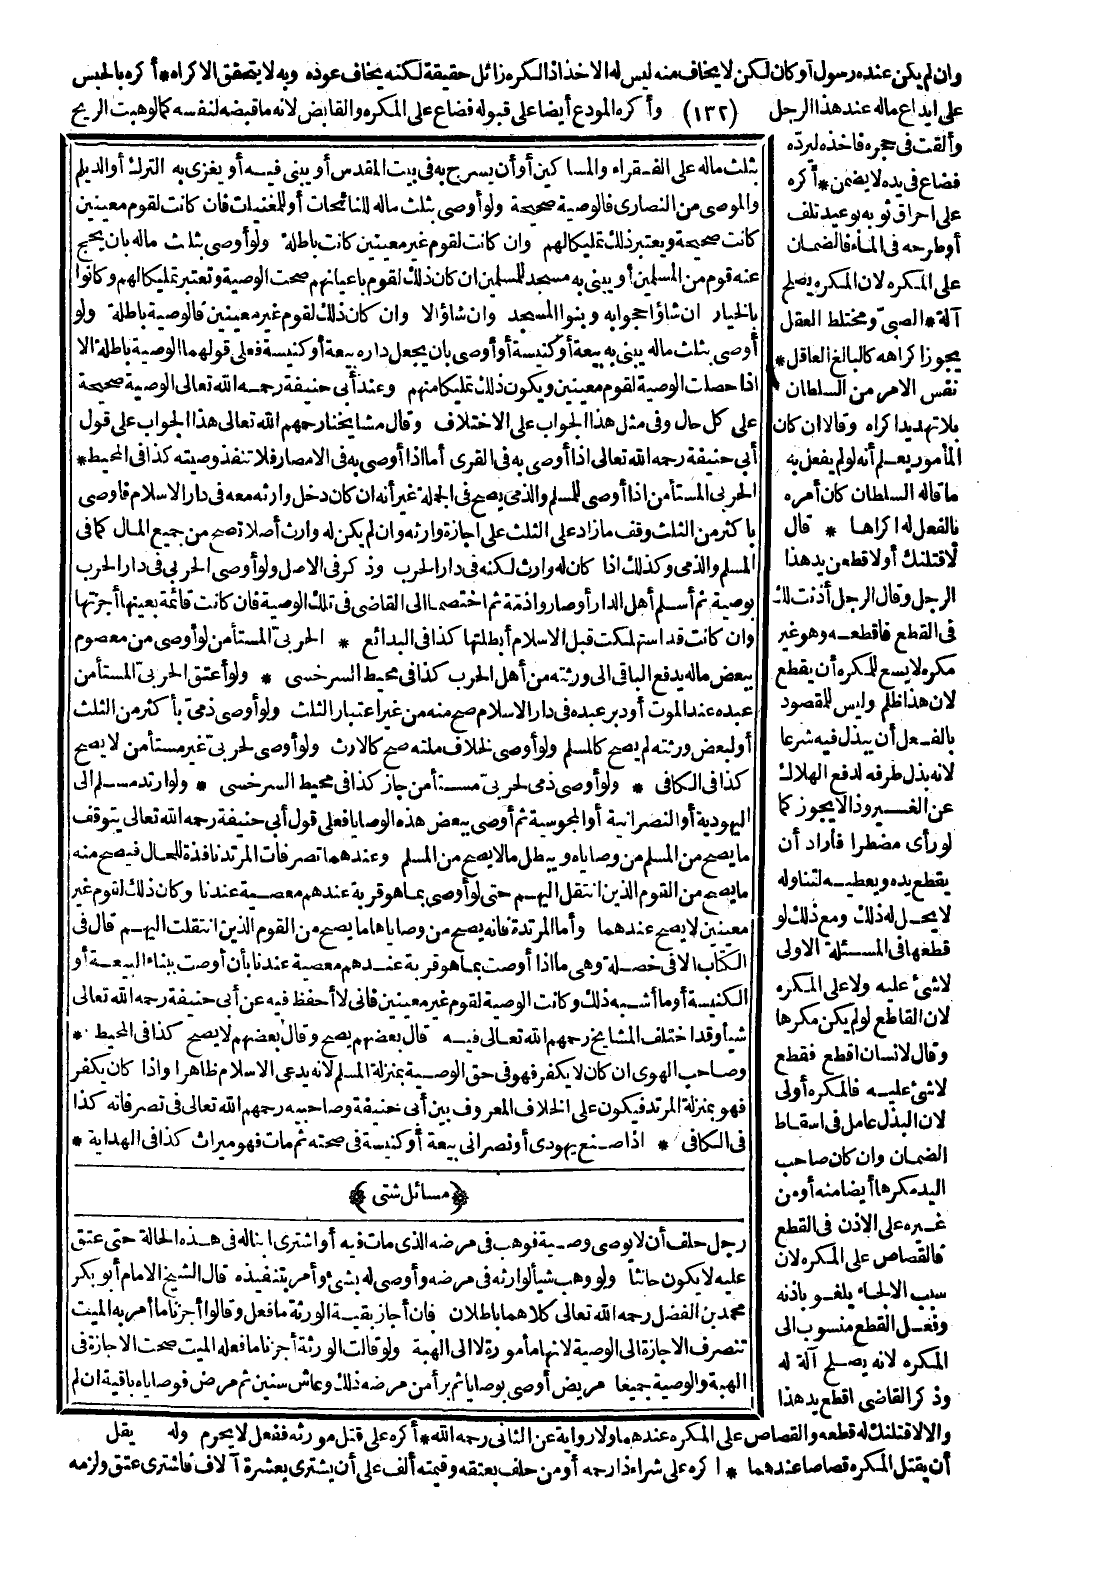 وان لم يكن عنده رسول أو كان لكن لا يخاف منه ليس له الاخذ اذ المكره زائل حقيقة لكنه يخاف عوده وبه لا يتحقق الاكراه * أكره بالحبس
على ايداع ماله عند هذا الرجل (١٣٢) وأكره المودع أيضا على قبوله فضاع على المكره والقابض لانه ما قبضه لنفسه كما لو هبت الريح
وألقت فى حجره فاخذه ليرده
فضاع فى يده لا يضمن * أكره
على احراق ثوبه بوعيد تلف
أو طرحه فى الماء فالضمان
على المكره لان المكره يصلح
آلة * الصبى ومختلط العقل
يجوز اكراهه كالبالغ العاقل *
نفس الامر من السلطان
بلا تهديد اكراه وقالا ان كان
المأمور يعلم أنه لو لم يفعل به
ما قاله السلطان كان أمره
بالفعل له اكراها * قال
لاقتلنك أو لا قطعن يد هذا
الرجل وقال الرجل أذنت لك
فى القطع فاقطعه وهو غير
مكره لا يسع للمكره أن يقطع
لان هذا ظلم وليس للمقصود
بالفعل أن يبذل فيه شرعا
لانه بذل طرفه لدفع الهلاك
عن الغير وذا لا يجوز كما
لو رأى مضطرا فاراد أن
يقطع يده ويعطيه لتناوله
لا يحل له ذلك ومع ذلك لو
قطعها فى المسئلة الاولى
لا شئ عليه ولا على المكره
لان القاطع لو لم يكن مكرها
وقال لانسان اقطع فقطع
لا شئ عليه فالمكره أولى
لان البذل عامل فى اسقاط
الضمان وان كان صاحب
اليد مكرها أيضا منه أو من
غيره على الاذن فى القطع
فالقصاص على المكره لان
سبب الالجاء يلغو باذنه
وفعل القطع منسوب الى
المكره لانه يصلح آلة له
وذكر القاضى اقطع يد هذا
بثلث ماله على الفقراء والمساكين أو أن يسرج به فى بيت المقدس أو يبنى فيه أو يغزى به الترك أو الديلم
والموصى من النصارى فالوصية صحيحة ولو أوصى بثلث ماله للنائحات أو للمغنيات فان كانت لقوم معينين
كانت صحيحة ويعتبر ذلك تمليكا لهم وان كانت لقوم غير معينين كانت باطلة ولو أوصى بثلث ماله بان يحج
عنه قوم من المسلمين أو يبنى به مسجد للمسلمين ان كان ذلك لقوم باعيانهم صحت الوصية وتعتبر تمليكا لهم وكانوا
بالخيار ان شاؤا حجوا به وبنوا المسجد وان شاؤا لا وان كان ذلك لقوم غير معينين فالوصية باطلة ولو
أوصى بثلث ماله يبنى به بيعة أو كنيسة أو أوصى بان يجعل داره بيعة أو كنيسة فعلى قولهما الوصية باطلة الا
اذا حصلت الوصية لقوم معينين ويكون ذلك تمليكا منهم وعند أبى حنيفة رحمه الله تعالى الوصية صحيحة
على كل حال وفى مثل هذا الجواب على الاختلاف وقال مشايخنا رحمهم الله تعالى هذا الجواب على قول
أبى حنيفة رحمه الله تعالى اذا أوصى به فى القرى أما اذا أوصى به فى الامصار فلا تنفذ وصيته كذا فى المحيط *
الحربى المستأمن اذا أوصى للمسلم والذمى يصح فى الجملة غير أنه ان كان دخل وارثه معه فى دار الاسلام فاوصى
باكثر من الثلث وقف ما زاد على الثلث على اجازة وارثه وان لم يكن له وارث أصلا تصح من جميع المال كما فى
المسلم والذمى وكذلك اذا كان له وارث لكنه فى دار الحرب وذكر فى الاصل ولو أوصى الحربى فى دار الحرب
بوصية ثم أسلم أهل الدار أو صاروا ذمة ثم اختصما الى القاضى فى تلك الوصية فان كانت قائمة بعينها أجزتها
وان كانت قد استهلكت قبل الاسلام أبطلتها كذا فى البدائع * الحربى المستأمن لو أوصى من معصوم
ببعض ماله يدفع الباقى الى ورثته من أهل الحرب كذا فى محيط السرخسى * ولو أعتق الحربى المستأمن
عبده عند الموت أو دبر عبده فى دار الاسلام صح منه من غير اعتبار الثلث ولو أوصى ذمى باكثر من الثلث
أو لبعض ورثته لم يصح كالمسلم ولو أوصى لخلاف ملته صح كالارث ولو أوصى لحربى غير مستأمن لا يصح
كذا فى الكافى * ولو أوصى ذمى لحربى مستأمن جاز كذا فى محيط السرخسى * ولو ارتد مسلم الى
اليهودية أو النصرانية أو المجوسية ثم أوصى ببعض هذه الوصايا فعلى قول أبى حنيفة رحمه الله تعالى يتوقف
ما يصح من المسلم من وصاياه ويبطل ما لا يصح من المسلم وعندهما تصرفات المرتد نافذة للحال فيصح منه
ما يصح من القوم الذين انتقل اليهم حتى لو أوصى بما هو قربة عندهم معصية عندنا وكان ذلك لقوم غير
معينين لا يصح عندهما وأما المرتدة فانه يصح من وصاياها ما يصح من القوم الذين انتقلت اليهم قال فى
الكتاب الا فى خصلة وهى ما اذا أوصت بما هو قربة عندهم معصية عندنا بأن أوصت ببناء البيعة أو
الكنيسة أو ما أشبه ذلك وكانت الوصية لقوم غير معينين فانى لا أحفظ فيه عن أبى حنيفة رحمه الله تعالى
شيأ وقد اختلف المشايخ رحمهم الله تعالى فيه قال بعضهم يصح وقال بعضهم لا يصح كذا فى المحيط *
وصاحب الهوى ان كان لا يكفر فهو فى حق الوصية بمنزلة المسلم لانه يدعى الاسلام ظاهرا واذا كان يكفر
فهو بمنزلة المرتد فيكون على الخلاف المعروف بين أبى حنيفة وصاحبيه رحمهم الله تعالى فى تصرفاته كذا
فى الكافى * اذا صنع يهودى أو نصرانى بيعة أو كنيسة فى صحته ثم مات فهو ميراث كذا فى الهداية *
﴿مسائل شتى﴾
رجل حلف أن لا يوصى وصية فوهب فى مرضه الذى مات فيه أو اشترى ابنا له فى هذه الحالة حتى عتق
عليه لا يكون حانثا ولو وهب شيأ لوارثه فى مرضه وأوصى له بشئ وأمر بتنفيذه قال الشيخ الامام أبو بكر
محمد بن الفضل رحمه الله تعالى كلاهما باطلان فان أجاز بقية الورثة ما فعل وقالوا أجزنا ما أمر به الميت
تنصرف الاجازة الى الوصية لانها مأمورة لا الى الهبة ولو قالت الورثة أجزنا ما فعله الميت صحت الاجازة فى
الهبة والوصية جميعا مريض أوصى بوصايا ثم برأ من مرضه ذلك وعاش سنين ثم مرض فوصاياه باقية ان لم
والا لاقتلنك له قطعه والقصاص على المكره عندهما ولا رواية عن الثانى رحمه الله * أكره على قتل مورثه ففعل لا يحرم وله يقل
أن يقتل المكره قصاصا عندهما * اكره على شراء ذا رحمه أو من حلف بعتقه وقيمته ألف على أن يشترى بعشرة آلاف فاشترى عتق ولزمه